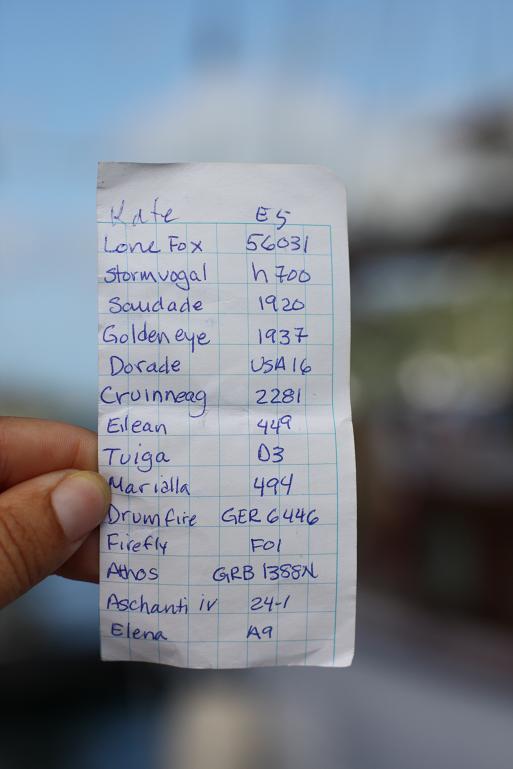 Kate E5
Lone Fox 56031
Stormvogal h 700
Saudade 1920
Goldeneye 1937
Dorade USA 16
Cruinneag 2281
Eilean 449
Tuiga D3
Marialla 494
Drumfire GER 6446
Firefly F01
Athos GRB 1388N
Aschanti iv 24-1
Elena A9